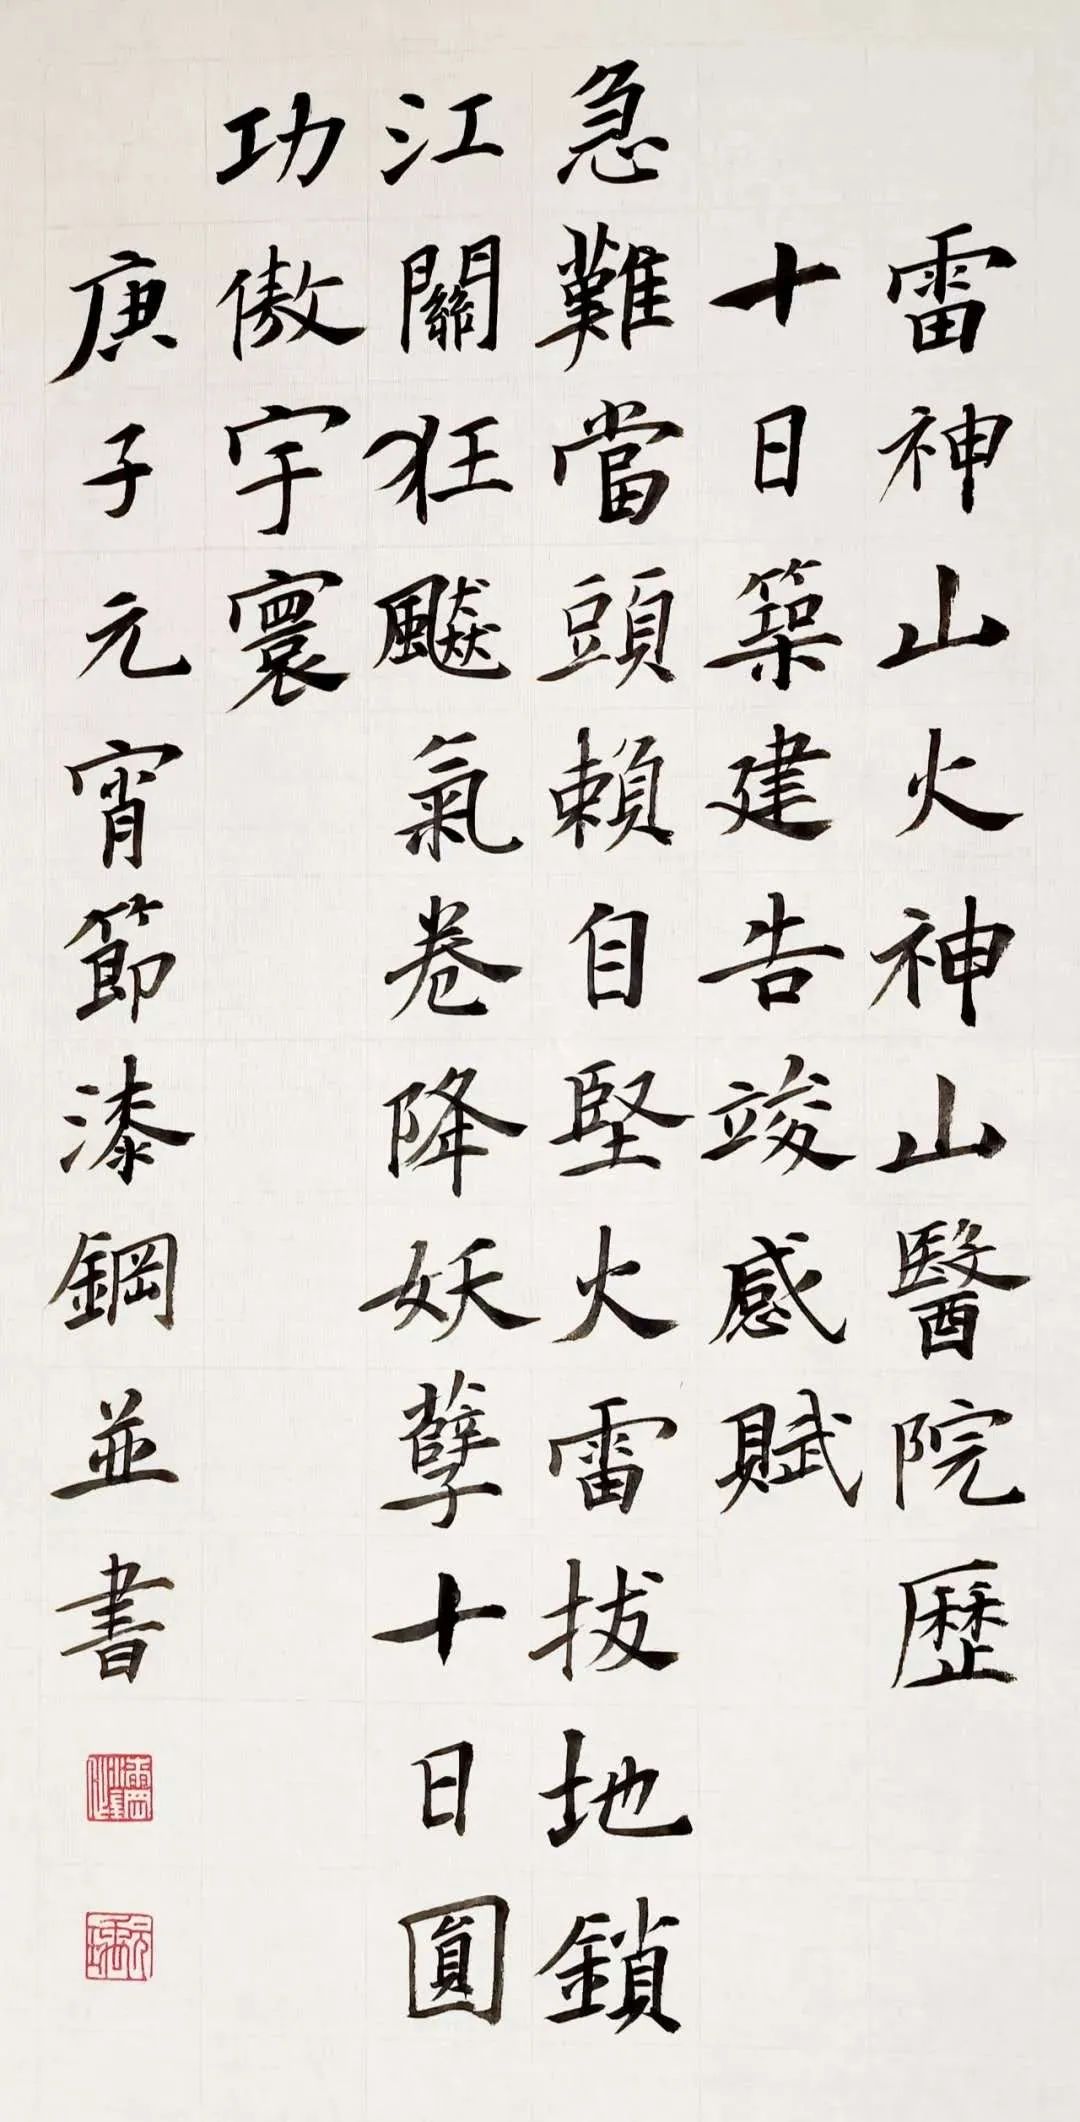 雷神山火神山醫院歷
十日築建告竣感賦
急難當頭賴自堅火雷拔地鎖
江關狂飇氣卷降妖孽十日圓
功傲宇寰
庚子元宵節漆鋼並書